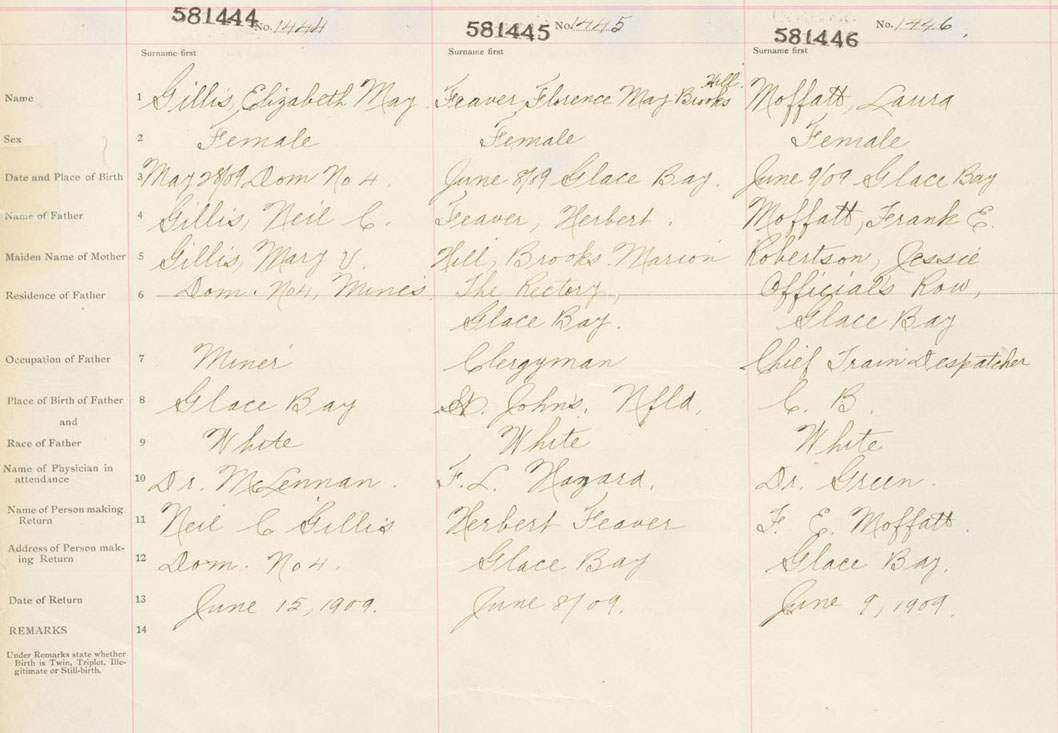 581444 No. 1444 581445 No. 1445 581446 No. 1446
Surname first Surname first Surname first
Name 1 Gillis, Elizabeth May Feaver, Florence May Brooks Hill Moffatt, Laura
Sex 2 Female Female Female
Date and Place of Birth 3 May 28/09 Dom No 4. June 8/09 Glace Bay. June 9/09 Glace Bay
Name of Father 4 Gillis, Neil C. Feaver, Herbert. Moffatt, Frank E.
Maiden Name of Mother 5 Gillis, Mary J. Hill, Brooks Marion Robertson, Jessie
Residence of Father 6 Dom. No4, Mines The Rectory, Official's Row,
Glace Bay. Glace Bay
Occupation of Father 7 Miner Clergyman Chief Train Despatcher
Place of Birth of Father 8 Glace Bay St. Johns, Nfld, C. B.
and
Race of Father 9 White White White
Name of Physician in
attendance 10 Dr. McLennan. F. L. Hazard. Dr. Green.
Name of Person making
Return 11 Neil C Gillis Herbert Feaver F. E. Moffatt.
Address of Person mak-
ing Return 12 Dom. No 4. Glace Bay Glace Bay.
Date of Return 13 June 15, 1909. June 8/09. June 9, 1909.
REMARKS 14
Under Remarks state whether
Birth is Twin, Triplet, Ille-
gitimate or Still-birth.